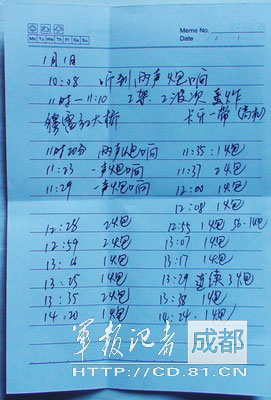 Memo No.
Mo Tu We Th Fr Sa Su
Date
1月1日
10:08 听到两声炮响
11时—11:10 2架.2波次 轰炸
大桥 卡子一带
11时20分 两声炮响 11:35:1炮
11:23 一声炮响 11:37 2炮
11:29 一声炮响 12:00 1炮
12:08 1炮
12:28 2炮 12:55 1炮 56-1炮
12:59 2炮 13:07 1炮
1炮 13:17 1炮
13:25 1炮 13:29 连续3炮
13:35 2炮 13:38 1炮
14:20 1炮 14:24:1炮
军报记者 成都
HTTP://CD.81.CN